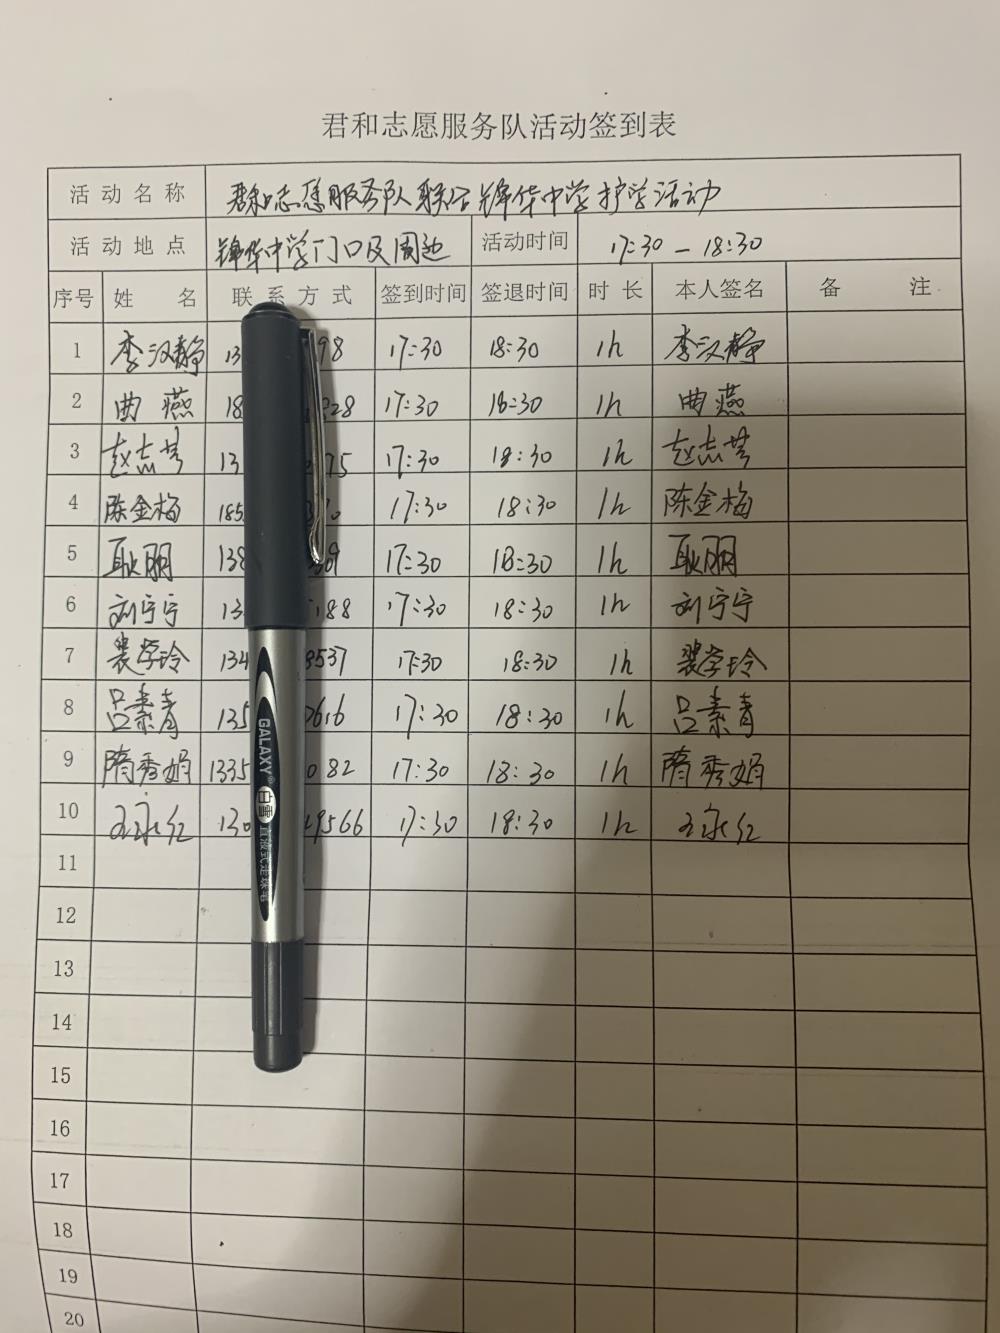 君和志愿服务队活动签到表
活动名称 君和志愿服务队联合锦华中学护学活动
活动地点 锦华中学门口及周边 活动时间 17:30-18:30
序号 姓名 联系方式 签到时间 签退时间 时长 本人签名 备注
1 李汉静 13 98 17:30 18:30 1h 李汉静
2 曲燕 18 28 17:30 18:30 1h 曲燕
3 赵志芳 13 75 17:30 18:30 1h 赵志芳
4 陈金梅 185 17:30 18:30 1h 陈金梅
5 耿丽 138 39 17:30 18:30 1h 耿丽
6 刘宁宁 13 188 17:30 18:30 1h 刘宁宁
7 裴学玲 134 8537 17:30 18:30 1h 裴学玲
8 吕素青 135 0616 17:30 18:30 1h 吕素青
9 隋秀娟 1335 082 17:30 18:30 1h 隋秀娟
10 王永红 130 49566 17:30 18:30 1h 王永红
11
12
13
14
15
16
17
18
19
20
GALAXY®
白雪 直液式走珠笔